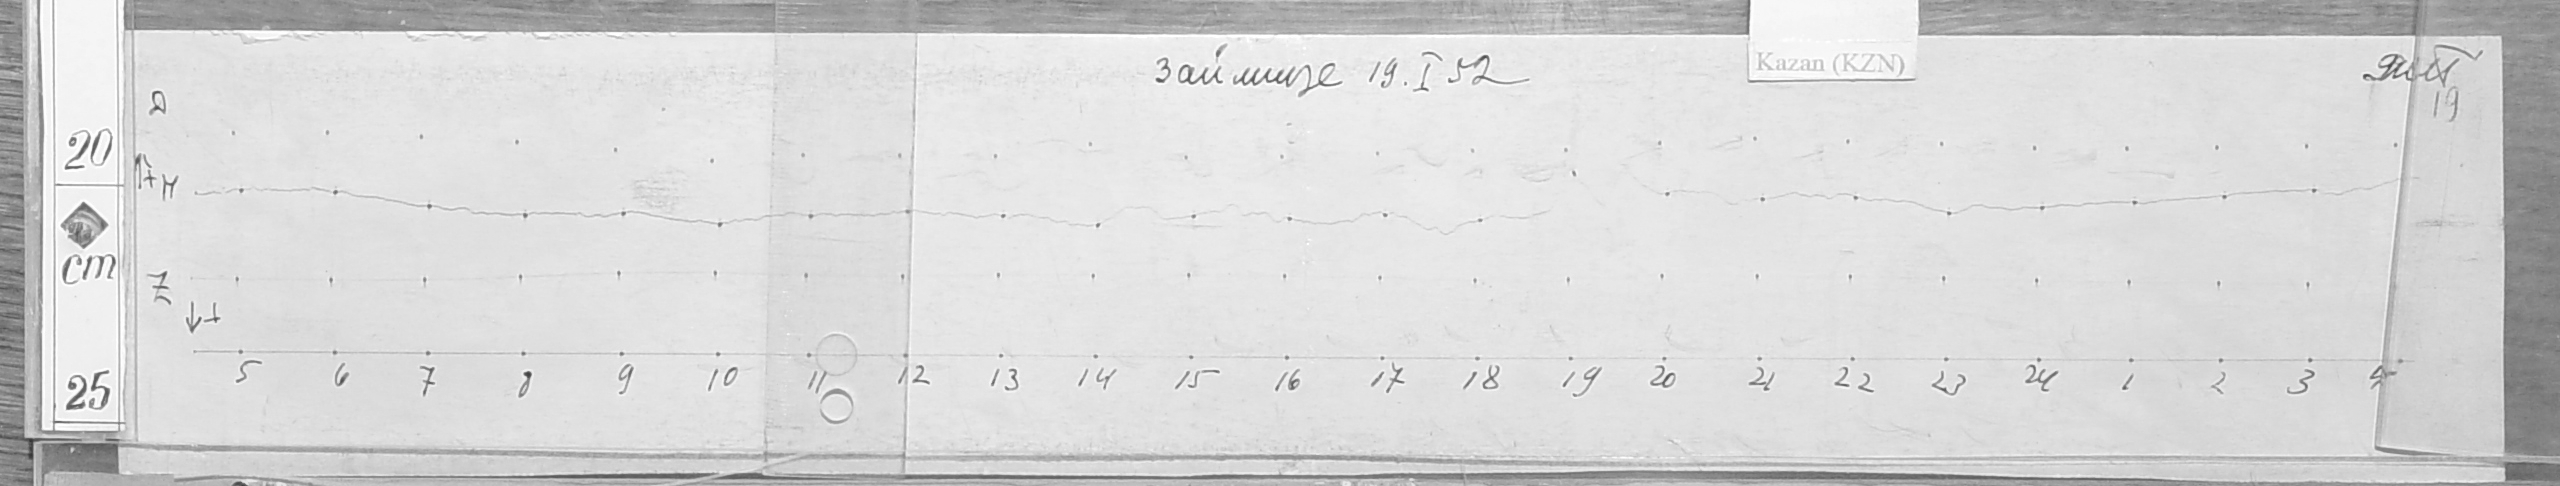 Займище 19.I 52
Kazan (KZN)
19
Д
20
↑+H
cm
Z
↓+
5 6 7 8 9 10 11 12 13 14 15 16 17 18 19 20 21 22 23 24 1 2 3 4
25